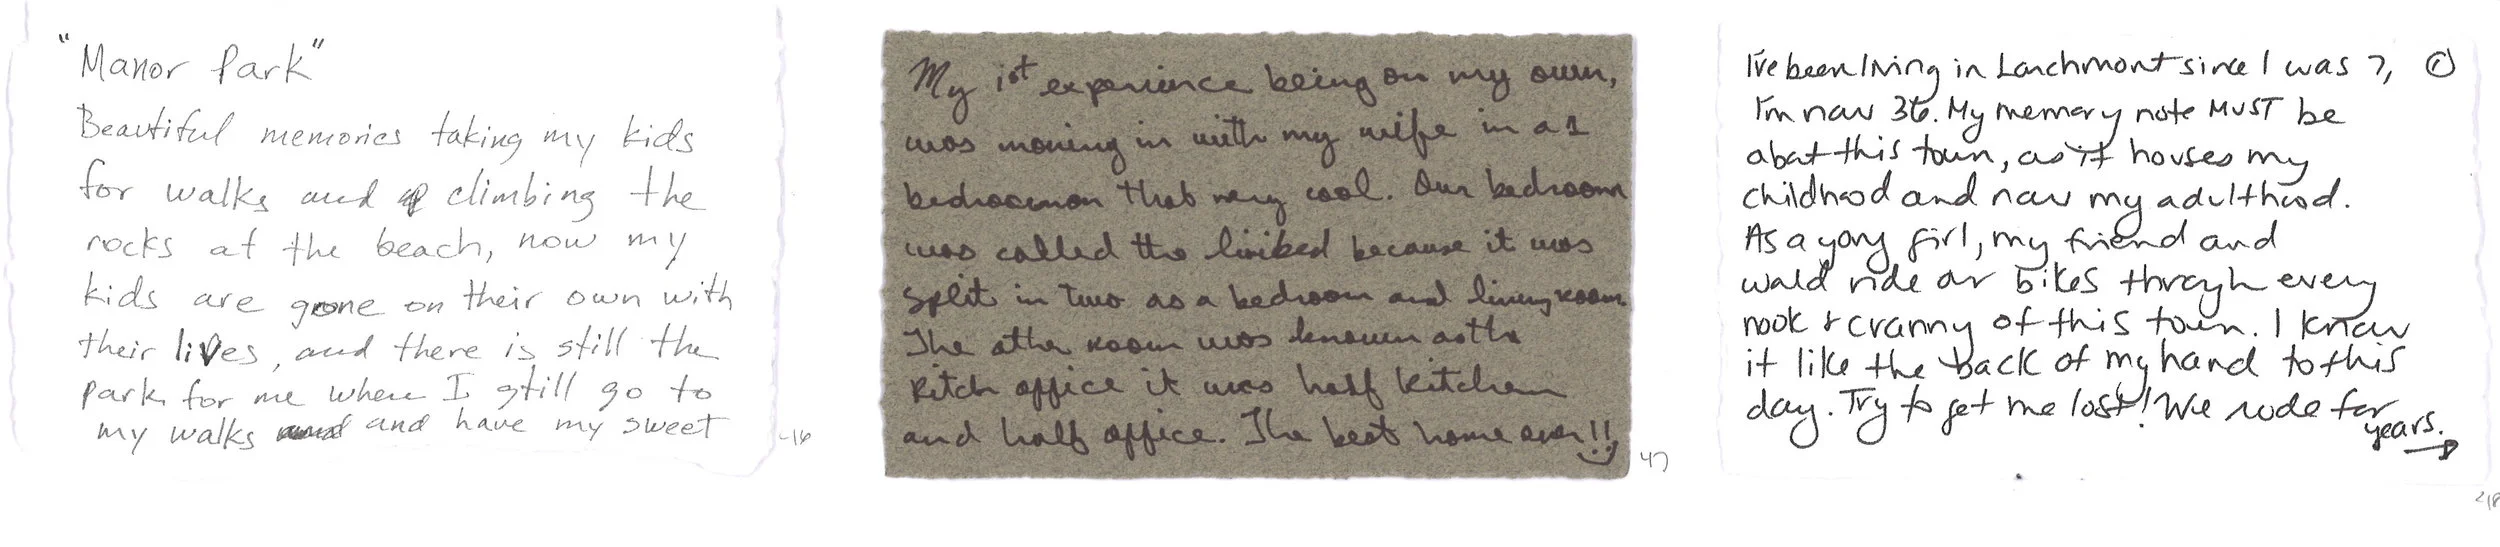 "Manor Park"
Beautiful memories taking my kids
for walks and climbing the
rocks at the beach, now my
kids are gone on their own with
their lives, and there is still the
park for me where I still go to
my walks and have my sweet
-16
My 1st experience being on my own,
was moving in with my wife in a 1
bedroom that was very cool. Our bedroom
was called the because it was
Split in two as a bedroom and living room.
The other room was known as the
Kitch office it was half kitchen
and half office. The best home ever!!
47
I've been living in Larchmont since I was 7, ①
I'm now 36. My memory note MUST be
about this town, as it houses my
childhood and now my adulthood.
As a yong girl, my friend and
would ride our bikes through every
nook & cranny of this town. I know
it like the back of my hand to this
day. Try to get me lost! We rode for
years. →